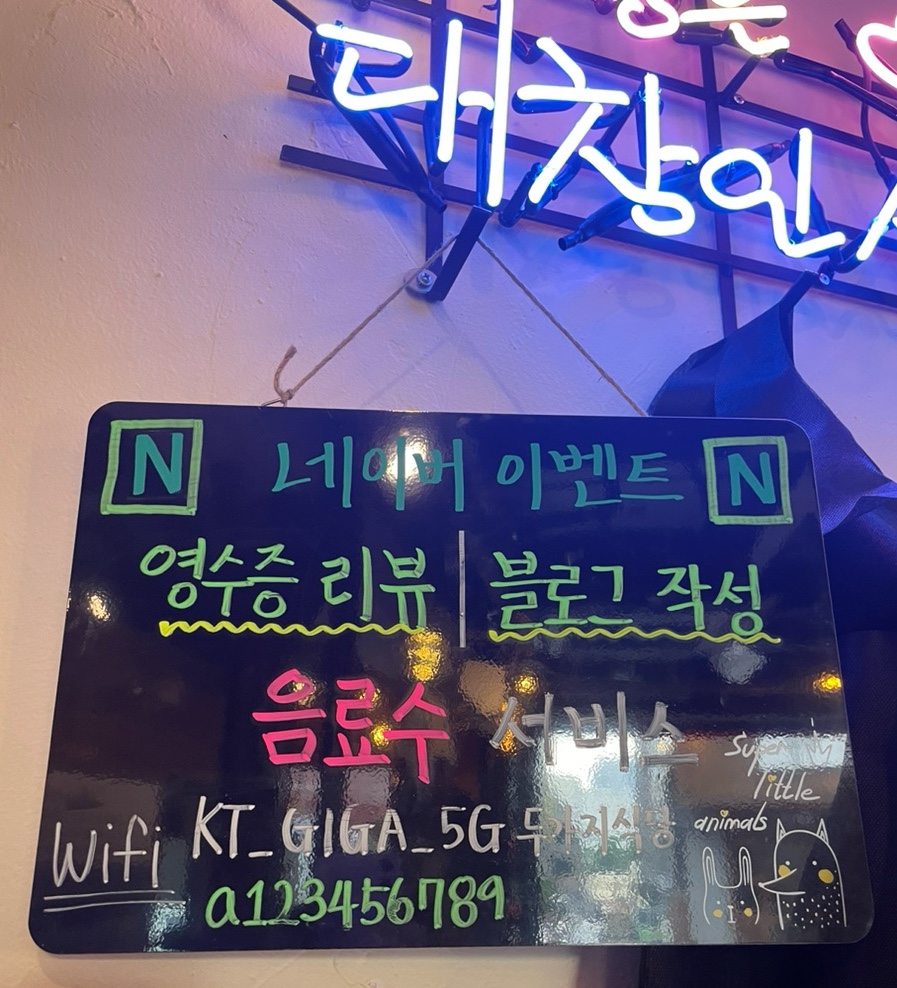 대창인
N 네이버 이벤트 N
영수증 리뷰 | 블로그 작성
음료수 서비스
little
animals
Wifi KT_GIGA_5G 두가지식당
a123456789